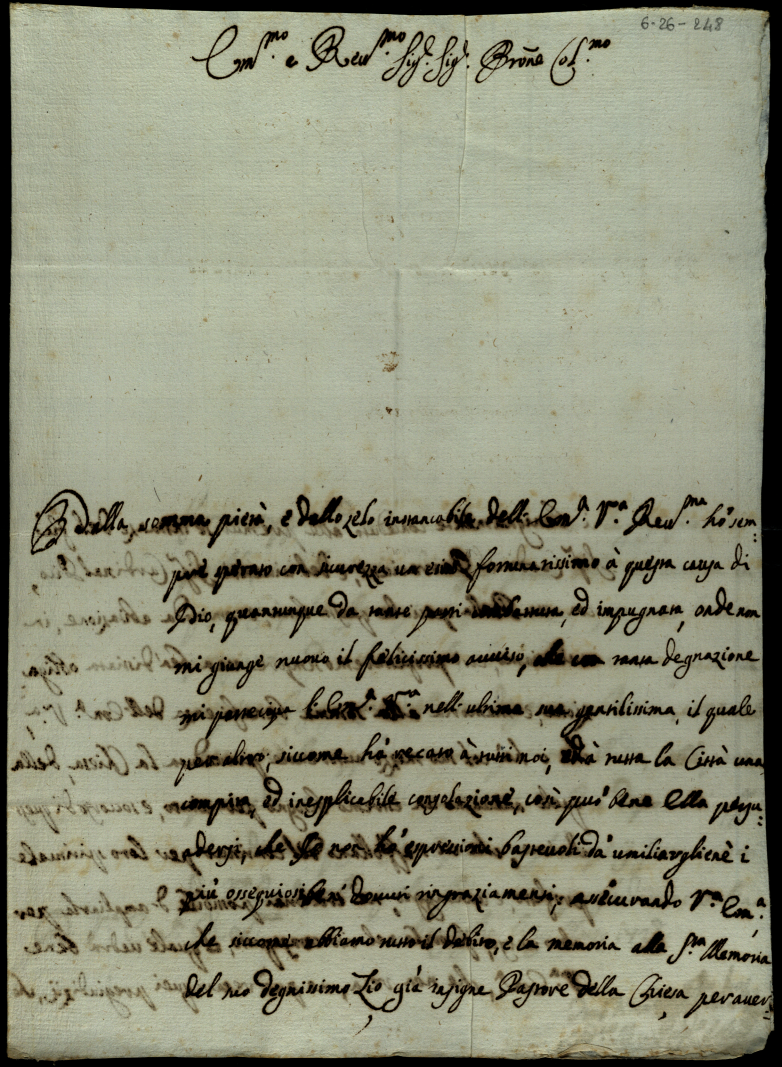 6-26-248
Em.mo e Reu.mo Sig.r Sig.r Prōne Col.mo
Dalla somma pietà, e dallo zelo instancabile dell' Em.a V.ra Reu.ma hò sem=
pre sperato con sicurezza un esito fortunatissimo à questa causa di
Dio, quantunque da tante parti combattuta, ed impugnata, onde non
mi giunge nuovo il felicissimo avviso, che con tanta degnazione
mi partecipa l'Em.a V.ra nell'ultima sua gentilissima, il quale
per altro, siccome hà recato à tutti noi, ed à tutta la Città una
compita, ed inesplicabile consolazione, così può bene Ella persu=
adersi, che Io non hò espressioni bastevoli dà umiliargliene i
più ossequiosi, e dovuti ringraziamenti, assicurando V.ra Em.a
che siccome abbiamo tutto il debito, e la memoria alla S.ta Memoria
del suo degnissimo Zio già insigne Pastore della Chiesa, per aver=